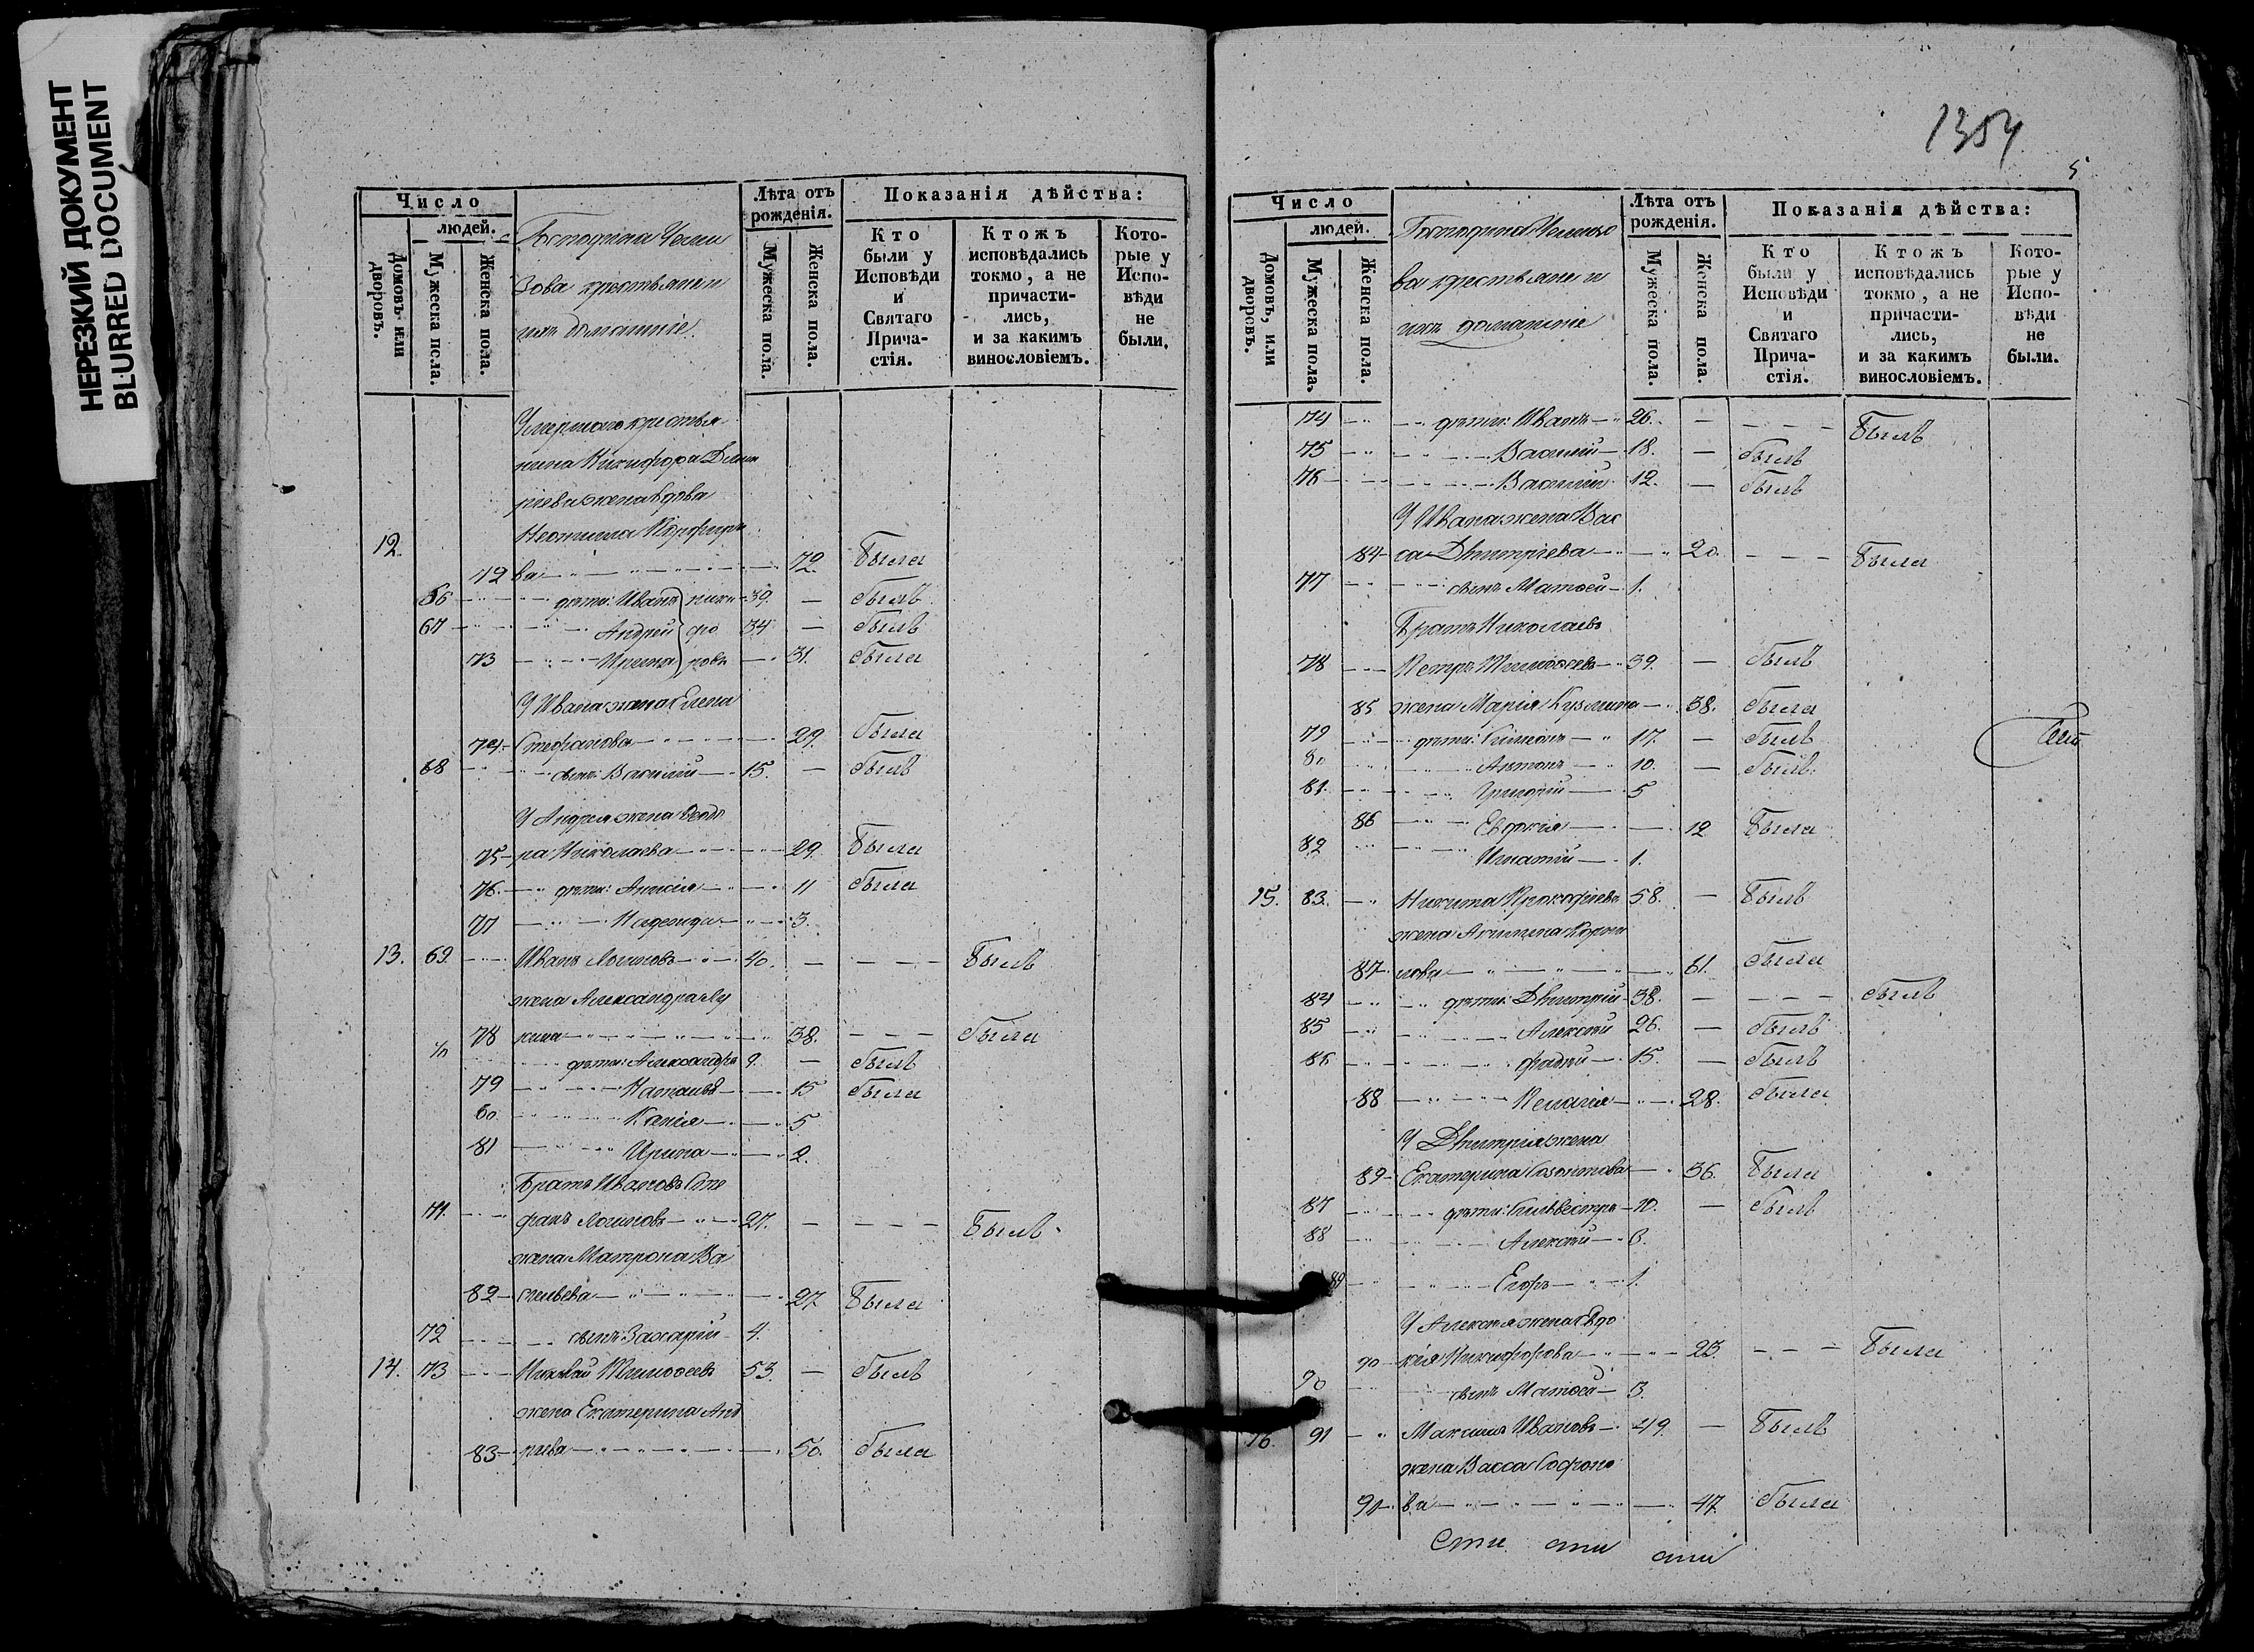 НЕРЕЗКИЙ ДОКУМЕНТ
BLURRED DOCUMENT
Число
людей.
Домовъ или дворовъ.
Мужеска пола.
Женска пола.
Господина
зова крестьяне и
ихъ домашніе
Лѣта отъ рожденія.
Мужеска пола.
Женска пола.
Показанія дѣйства:
Кто были у Исповѣди и Святаго Причастія.
Ктожъ исповѣдались токмо, а не причастились, и за какимъ винословіемъ.
Которые у Исповѣди не были.
Умершаго крестья
нина Никифора Дмит
ріева жена вдова
12. Неонилла
72 ва 72. Была
66 дѣти: Иванъ 39. — Былъ
67 Андрей 34 — Былъ
73 Ирина 31. Была
Никифоровы
У Ивана жена Елена
74. Стефанова 29. Была
68 сынъ Василій 15. — Былъ
У Андрея жена Ѳеодо
75 ра Николаева 29. Была
76. дѣти: Анисія 11 Была
77 Надежда 3.
13. 69. Иванъ Логиновъ 40. — Былъ
жена Александра Лу
78 кина 38. Была
70 дѣти: Александръ 9. — Былъ
79 Наталья 15 Была
80. Ксенія 5
81 Ирина 2.
Братъ Ивановъ Сте
71. фанъ Логиновъ 27. — Былъ
жена Матрона Ва
82 сильева 27 Была
72 сынъ Захарій 4.
14. 73 Николай Тимоѳеевъ 53. — Былъ
жена Екатерина Анд
83 реева 50. Была
1354
5
Число
людей.
Домовъ, или дворовъ.
Мужеска пола.
Женска пола.
Господина
ва крестьяне и
ихъ домашніе
Лѣта отъ рожденія.
Мужеска пола.
Женска пола.
Показанія дѣйства:
Кто были у Исповѣди и Святаго Причастія.
Ктожъ исповѣдались токмо, а не причастились, и за какимъ винословіемъ.
Которые у Исповѣди не были.
74 дѣти: Иванъ 26. — Былъ
75 Василій 18. — Былъ
76 Василій 12. — Былъ
У Ивана жена Вас
84 са Дмитріева 20. Была
77 сынъ Матѳей 1.
Братъ Николаевъ
78 Петръ Тимоѳеевъ 39. — Былъ
85 жена Марія Кузмина 38. Была
79 дѣти: Симеонъ 17. — Былъ
80 Антонъ 10. — Былъ
81. Григорій 5
86 Евдокія 12 Была
82 Игнатій 1.
15. 83. Никита Прокофіевъ 58. — Былъ
жена Акилина Корни
87 лова 61. Была
84 дѣти: Дмитрій 38. — Былъ
85 Алексѣй 26. — Былъ
86 Фадѣй 15. — Былъ
88 Пелагія 28. Была
У Дмитрія жена
89 Екатерина Созонтова 36. Была
87 дѣти: Сильвестръ 10. — Былъ
88 Алексѣй 6.
89 Егоръ 1.
У Алексѣя жена Евдо
90 кія Никифорова 23. Была
90 сынъ Матѳей 3.
16. 91 Максимъ Ивановъ 49. — Былъ
жена Васса Софроно
91 ва 47. Была